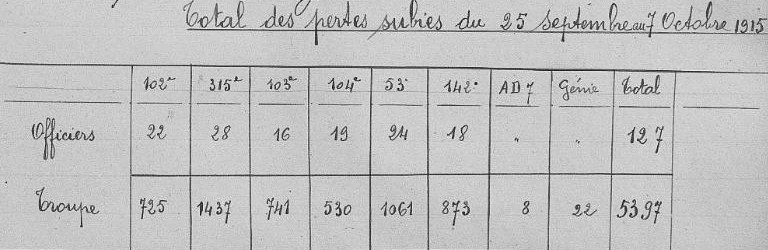 Total des pertes subies du 25 septembre au 7 Octobre 1915
102e 315e 103e 104e 53e 142e AD 7 Génie Total
Officiers 22 28 16 19 24 18 " " 127
Troupe 725 1437 741 530 1061 873 8 22 5397